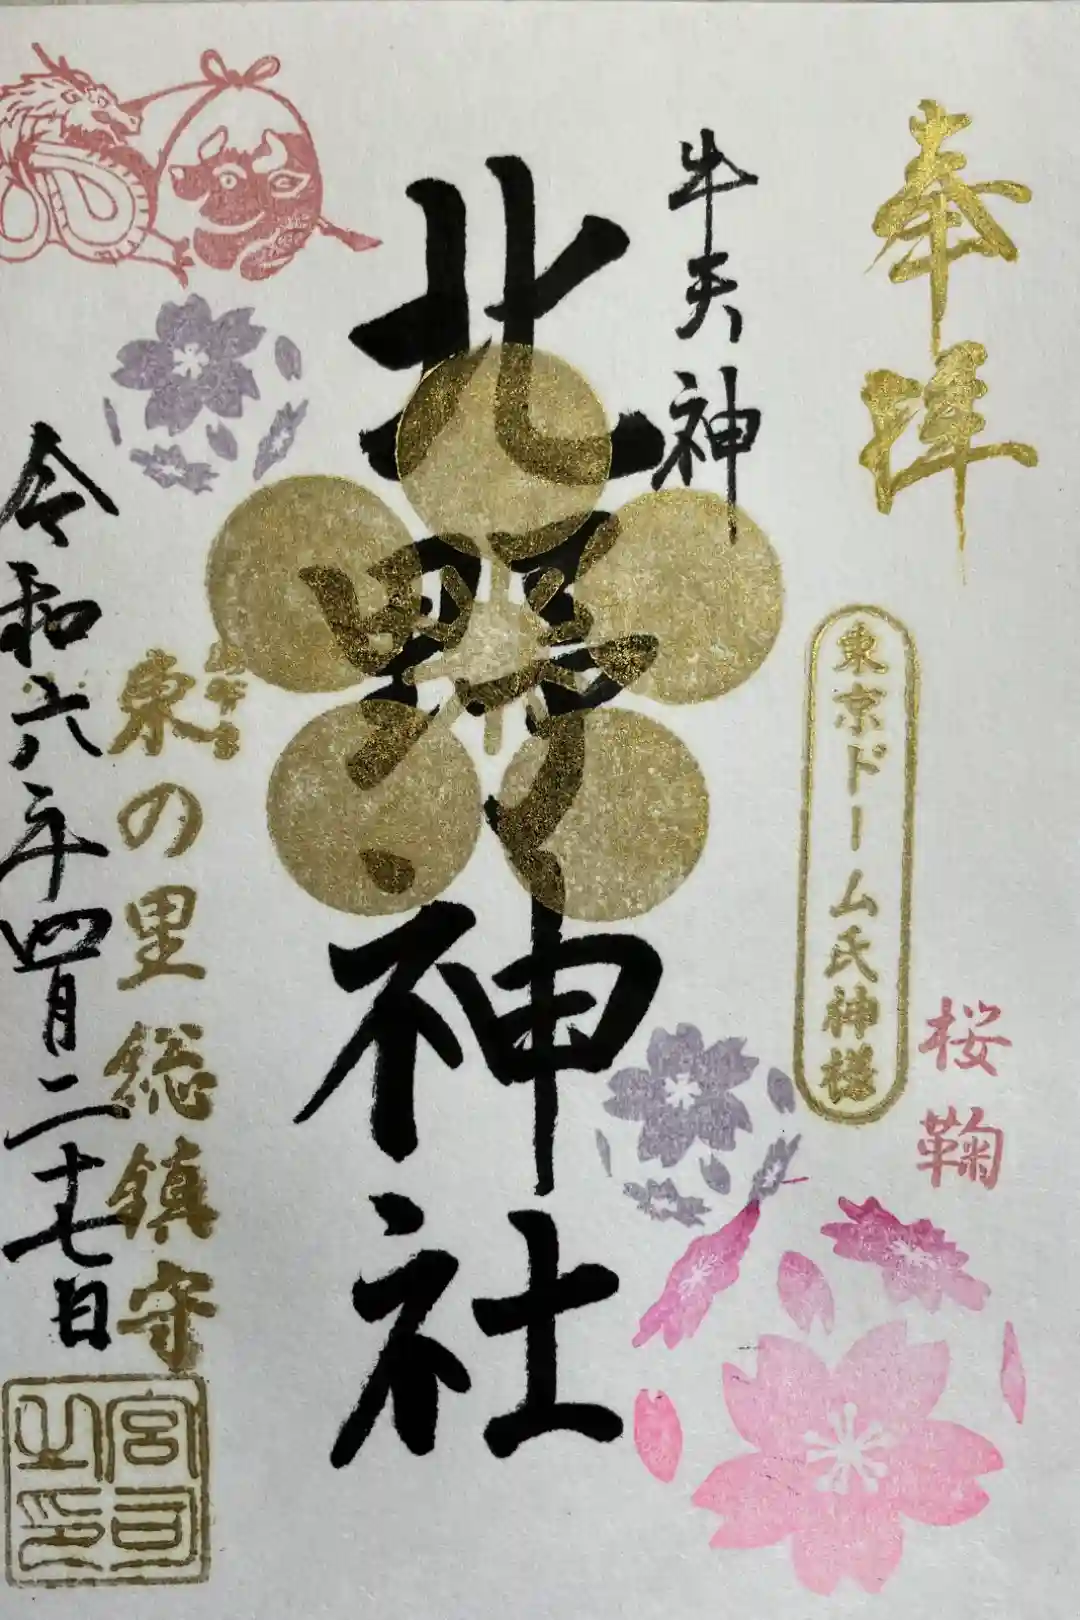 奉拝
東京ドーム氏神様
桜鞠
牛天神
北野神社
東の里総鎮守
令和六年四月二十七日
宮司之印